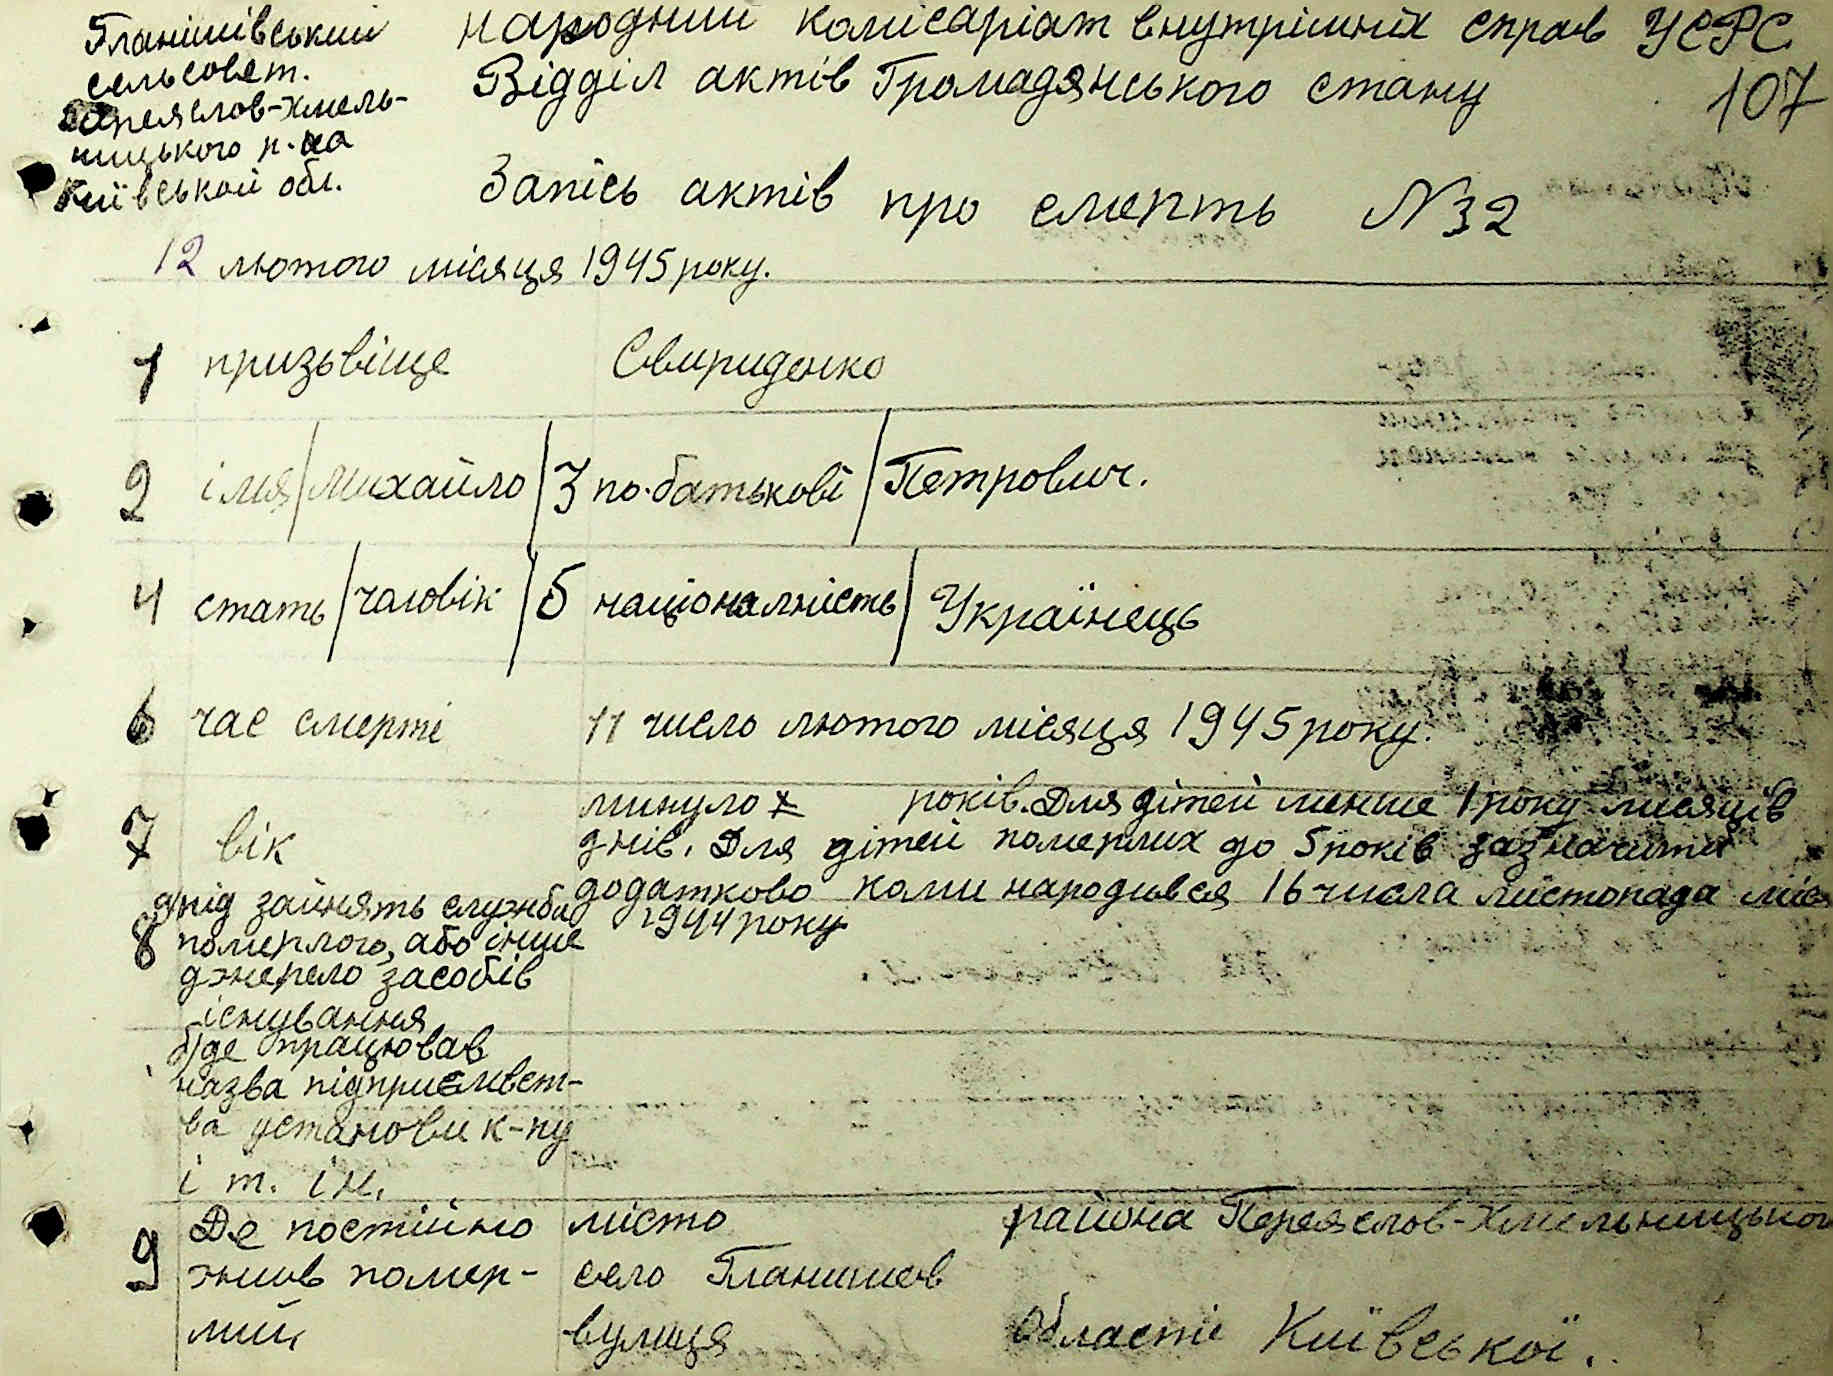 Гланишівський
сельсовет.
Переяслов-Хмель-
ницького р-на
Київськой обл.
Народний комісаріат внутрішніх справ УСРС
Відділ актів Громадянського стану
107
Запісь актів про смерть №32
12 лютого місяця 1945 року.
1 призьвіще Свириденко
2 імя Михайло 3 по-батькові Петрович.
4 стать чоловік 5 національність Українець
6 час смерті 11 число лютого місяця 1945 року.
7 вік минуло років. Для дітей менше 1 року місяців
днів. Для дітей померлих до 5 років зазначити
додатково коли народився 16 числа листопада міс
1944 року
8 а) рід занять служби
померлого, або інше
джерело засобів
існування
б) де працював
назва підприємст-
ва установи к-пу
і т. ін.
9 Де постійно місто района Переяслов-Хмельницького
жив помер- село Гланишов
лий, вулиця Області Київської.